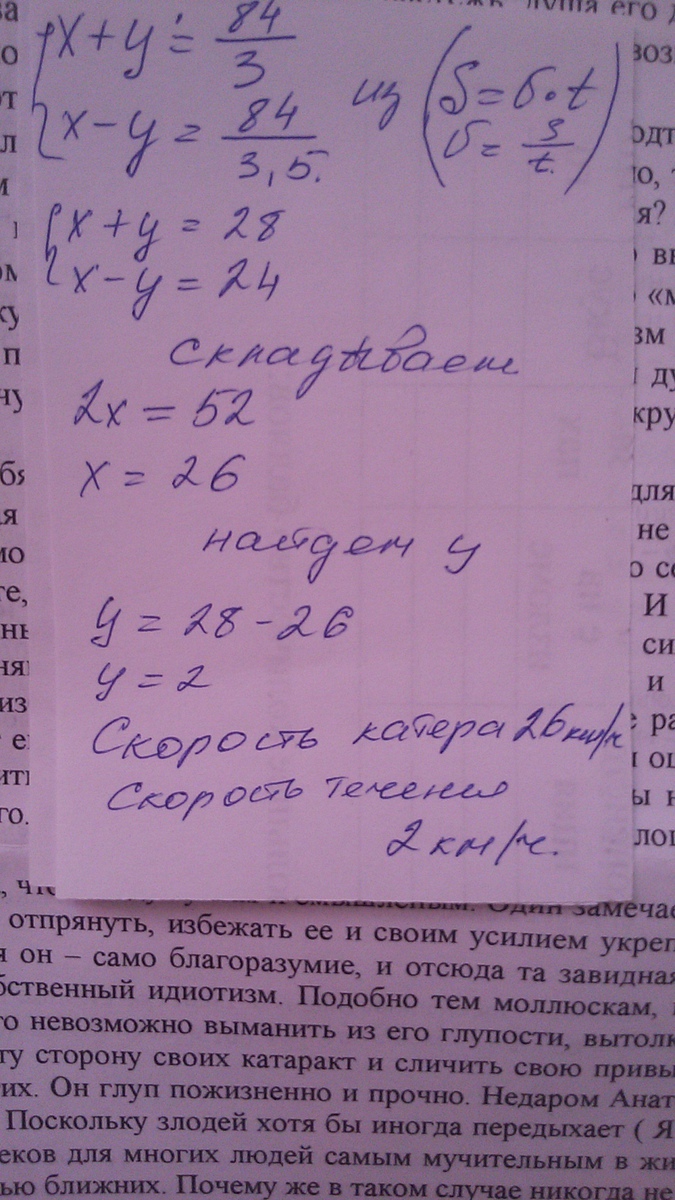 x+y = 84/3
x-y = 84/3,5.
из (S = υ·t
υ = S/t.)
x+y = 28
x-y = 24
складываем
2x = 52
x = 26
найдем y
y = 28-26
y = 2
Скорость катера 26 км/ч
Скорость течения
2 км/ч.
отпрянуть, избежать ее и своим усилием укреп
я он – само благоразумие, и отсюда та завидная
бственный идиотизм. Подобно тем моллюскам,
го невозможно выманить из его глупости, вытолк
ту сторону своих катаракт и сличить свою привы
гих. Он глуп пожизненно и прочно. Недаром Анат
Поскольку злодей хотя бы иногда передыхает ( Я
еков для многих людей самым мучительным в жи
ью ближних. Почему же в таком случае никогда не